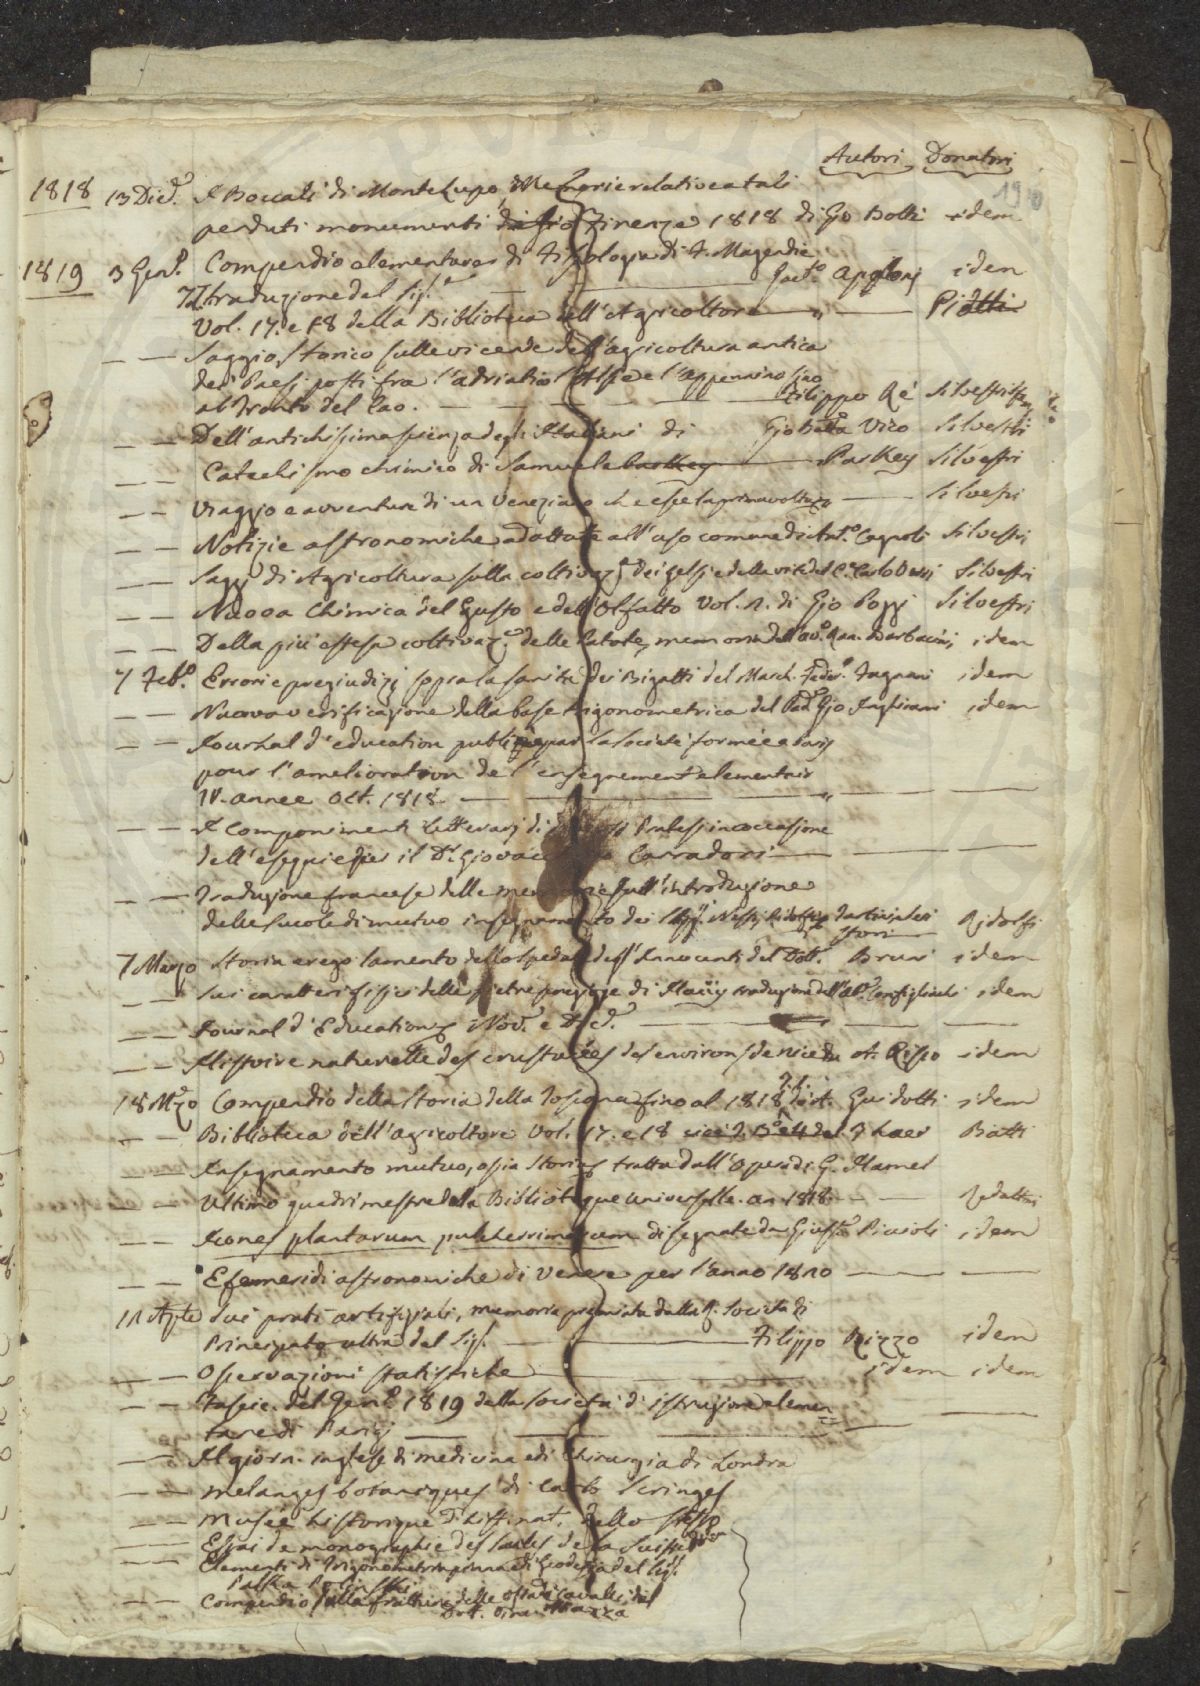 Autori Donatori
190
1818 13 Dic.e I Boccali di Montelupo, Memorie relative a tali
perduti monumenti Firenze 1818 di Gio Botti idem
1819 3 Gen.o Compendio elementare di Fisiologia di F. Magendie
Traduzione del Sig.r Gaet.o idem
Vol. 17. e 18 della Biblioteca dell'Agricoltore — " — Piatti
— — Saggio Storico sulle vicende dell'agricoltura antica
dei Paesi posti fra l'adriatico l'Alpe e l'appennino sino
al Tronto del Cao. — Filippo Ré Silvestri
— — Dell'antichissima sapienza degli Italiani di Gio Batta Vico Silvestri
— — Catechismo chimico di Samuele Parkey Silvestri
— — Viaggio e avventure di un Veneziano ch esce la prima volta " — Silvestri
— — Notizie astronomiche adattate all'uso comune di Ant.o Cagnoli Silvestri
— — Saggj di Agricoltura sulla coltivaz.e dei gelsi e della vite del C.e Carlo Verri Silvestri
— — Nuova Chimica del Gusto e dell'Olfatto Vol. 2. di Gio Poggj Silvestri
— — Della più estesa coltivaz.e delle Patate, memoria dell'av.o idem
7 Feb.o Errori e pregiudizj sopra la sanità dei Bigatti del March. Feder.o Fagnani idem
— — Nuova verificazione della base trigonometrica del Pad.e Gio Inghirami idem
— — Journal d'education publié par la societé formée a Paris
pour l'amelioration de l'enseignement elementair
IV. année Oct. 1818. — "
— — I Componimenti Letterarj di Pratesi in occasione
dell'esequie per il D.r Giovacchino Carradori
— — Traduzione francese delle memorie sull'introduzione
delle scuole di mutuo insegnamento dei Sigg.i Nesti, Ridolfi e Tartini Ridolfi
7 Marzo Storia e regolamento dello Spedale degl'Innocenti del Dott. Bruni idem
— — Sui caratteri fisici delle pietre preziose di Haüy traduzione dell'ab.e Configliachi idem
— — Journal d'Education, Nov.e e Dic.e
— — Histoire naturelle des crustacées des environs de Nice du A. Risso idem
18 M.zo Compendio della Storia della Toscana fino al 1818 Guidotti idem
— — Biblioteca dell'agricoltore Vol. 17. e 18 Batti
— Insegnamento mutuo, ossia Storia tratta dall'Opera di G. Hamel
— — Ultimo quadrimestre della Biblioteque universelle. an 1818. — —
— — Icones plantarum pulcherrimarum disegnate da Gius.e Picioli idem
— — Efemeridi astronomiche di Venere per l'anno 1820
Sui prati artifiziali, memoria premiata dalla R. Società di
Principato ultra del Sig. — Filippo Rizzo idem
— — Osservazioni statistiche — idem idem
— — Fascic. del Gen.o 1819 della società d'istruzione elemen
tare di Parigi
— — Il giorn. inglese di medicina e di Chirurgia di Londra
— — Melanges botaniques di Seringes
— — Musée historique d'hist. nat. dello stesso
— — Essai de monographie des Saules de la Suisse
— — Elementi di Trigonometria piana e di Geodesia del Sig.
— — Compendio sulle fratture delle ossa di cavalli del
Dott. Mazza